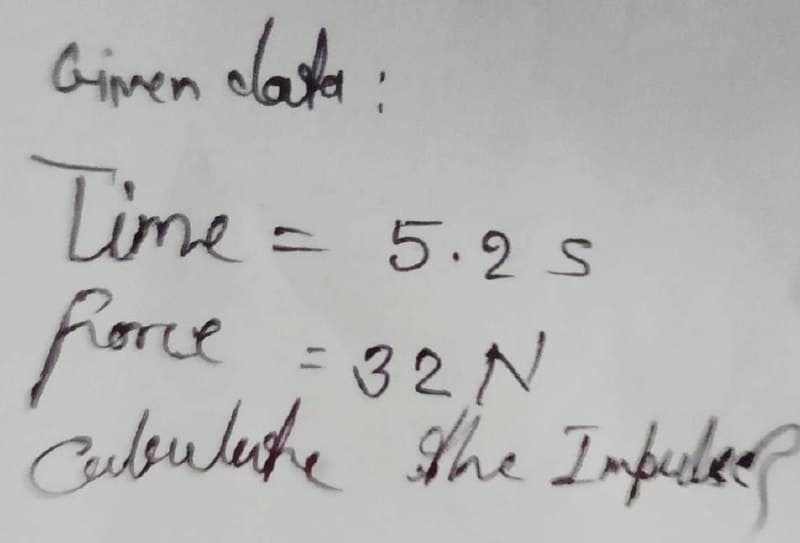 Given data:
Time = 5.2 s
force = 32 N
Calculate the Impulse?